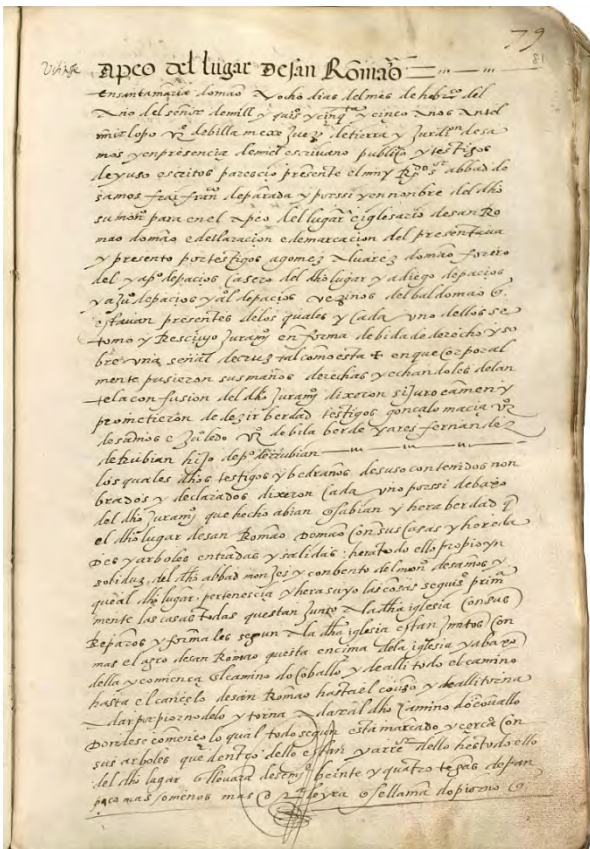 79
81
apeo del lugar de san Romão
en santa maria domao a ocho dias del mes de hebro del
año del señor de mill y quis y cinqta y cinco años antel
lopo vz de billamexe juez de tierra y jurison de sa
mos y en presencia de mi el escrivano publico y testigos
de yuso escritos parescio presente el muy Rdo sor abbad de
samos frai fran de parada y por ssi y en nonbre del dho
su mon para en el apeo del lugar e iglesario de san Ro
mao domão e declaracion e demarcacion del presentava
y presento por testigos a gomez alvarez domao forero
del y apo de pacios casero del dho lugar y a diego de pacios
y a juo de pacios y al de pacios vezinos del bal domao q
estavan presentes de los quales y cada uno dellos se
tomo y Rescivyo juramto en forma debida de derecho y so
bre una señal de cruz tal como esta + en que corporal
mente pusieron sus manos derechas y echandoles delan
te la confusion del dho juramto dixeron si juro e amen y
prometieron de dezir berdad testigos goncalo macia vz
de samos e vz de bila berde y ares fernandez
de Rubian hijo de po de Rubian
los quales dhos testigos y bedraños desuso contenidos non
brados y declarados dixeron cada uno por ssi debaxo
del dho juramto que hecho abian q sabian y hera berdad q
el dho lugar de san Romão domão con sus casas y hereda
des y arboles entradas y salidas hera todo ello propio yn
solidum del dho abbad monjes y conbento del mon de samos y
que al dho lugar pertenescia y hera suyo las cosas seguies prima
mente las casas todas questan junto a la dha iglesia con sus
Reparos y formales segun a la dha iglesia estan juntos con
mas el agro de san Romao questa encima de la iglesia y abaxo
della y comienca el camino do coballo y de alli todo el camino
hasta el cancelo de san Romão hasta el couso y de alli torna
a dar piornodelo y torna a dar al dho camino do covallo
donde se comenco lo qual todo segun esta marcado y cerca con
sus arboles que dentro dello estan y dello hes todo ello
del dho lugar q llevara de beinte y quatro tegas de pan
poco mas o menos mas q se llama do piorno q